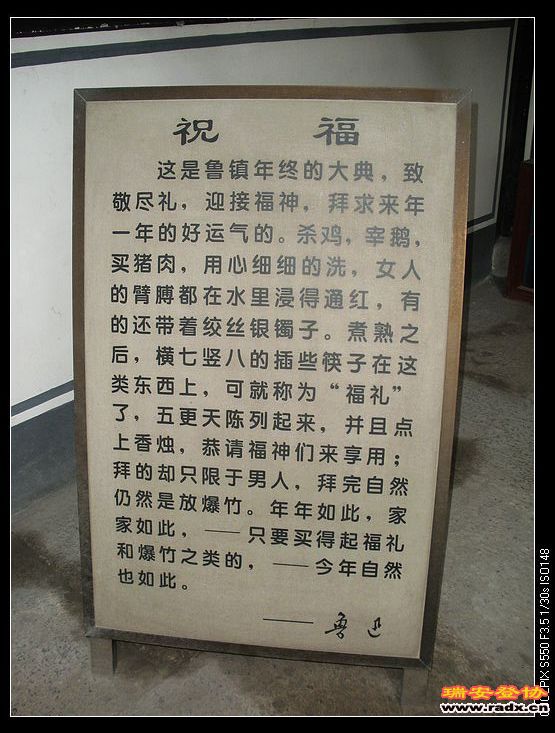 祝 福
这是鲁镇年终的大典，致
敬尽礼，迎接福神，拜求来年
一年的好运气的。杀鸡，宰鹅，
买猪肉，用心细细的洗，女人
的臂膊都在水里浸得通红，有
的还带着绞丝银镯子。煮熟之
后，横七竖八的插些筷子在这
类东西上，可就称为“福礼”
了，五更天陈列起来，并且点
上香烛，恭请福神们来享用；
拜的却只限于男人，拜完自然
仍然是放爆竹。年年如此，家
家如此，——只要买得起福礼
和爆竹之类的，——今年自然
也如此。
——鲁迅
瑞安登协
www.radx.cn
PIX S550 F3.5 1/30s ISO148